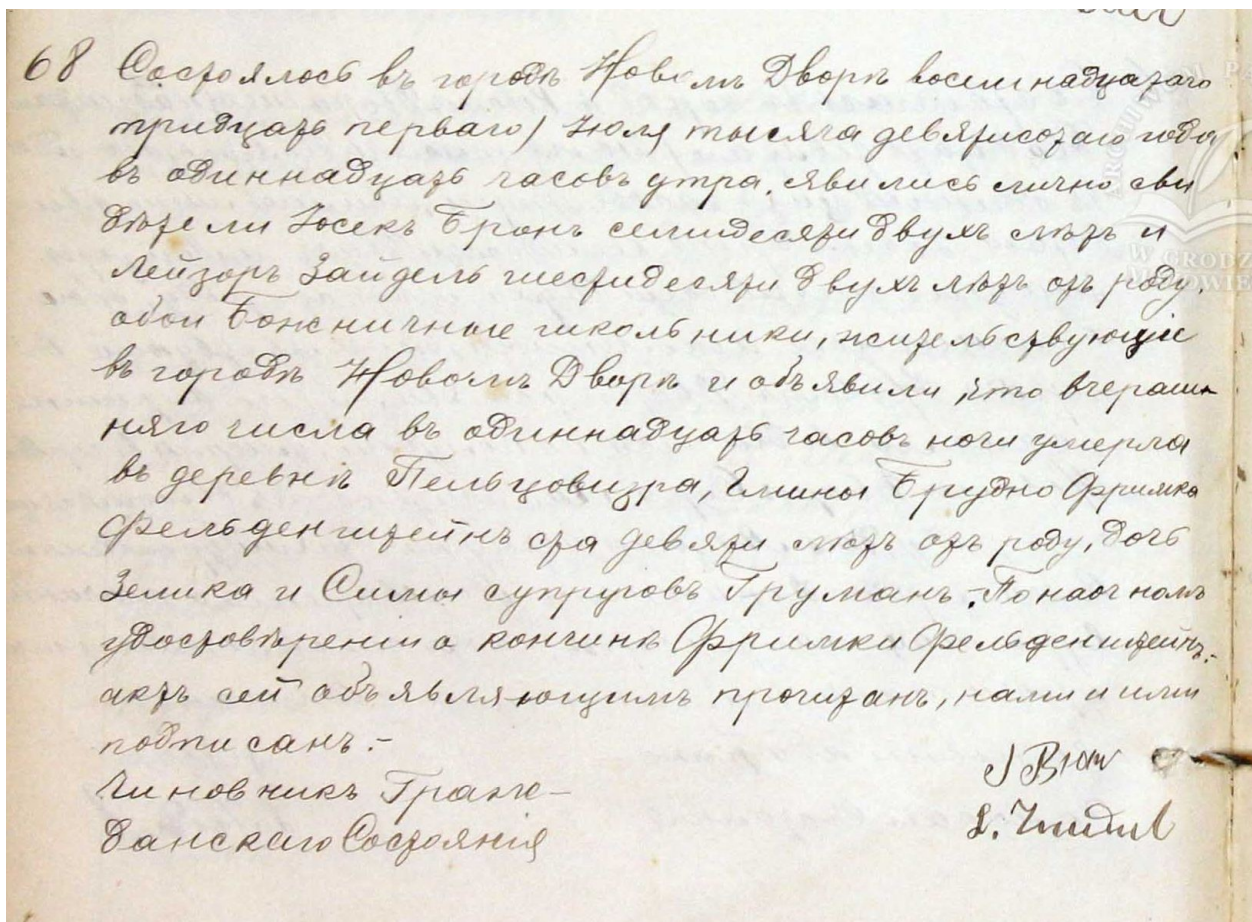 68 Состоялось въ городѣ Новомъ Дворѣ восемнадцатаго
тридцать перваго) Іюля тысяча девятисотаго года
въ одиннадцать часовъ утра. Явились лично сви
дѣтели Іосекъ Бронъ семидесяти двухъ лѣтъ и
Лейзоръ Зайдель шестидесяти двухъ лѣтъ отъ роду,
обои Божничные школьники, жительствующіе
въ городѣ Новомъ Дворѣ и объявили, что вчераш
няго числа въ одиннадцать часовъ ночи умерла
въ деревнѣ Пельцовизра, Гмины Брудно Фримка
Фельденштейнъ ста девяти лѣтъ отъ роду, дочь
Зелика и Симы супруговъ Груманъ. По наочномъ
удостовѣреніи о кончинѣ Фримки Фельденштейнъ.-
актъ сей объявляющимъ прочитанъ, нами и ими
подписанъ.-
Чиновникъ Граж-
данскаго Состоянія
J Bron
ARCHIWUM P
W GRODZ